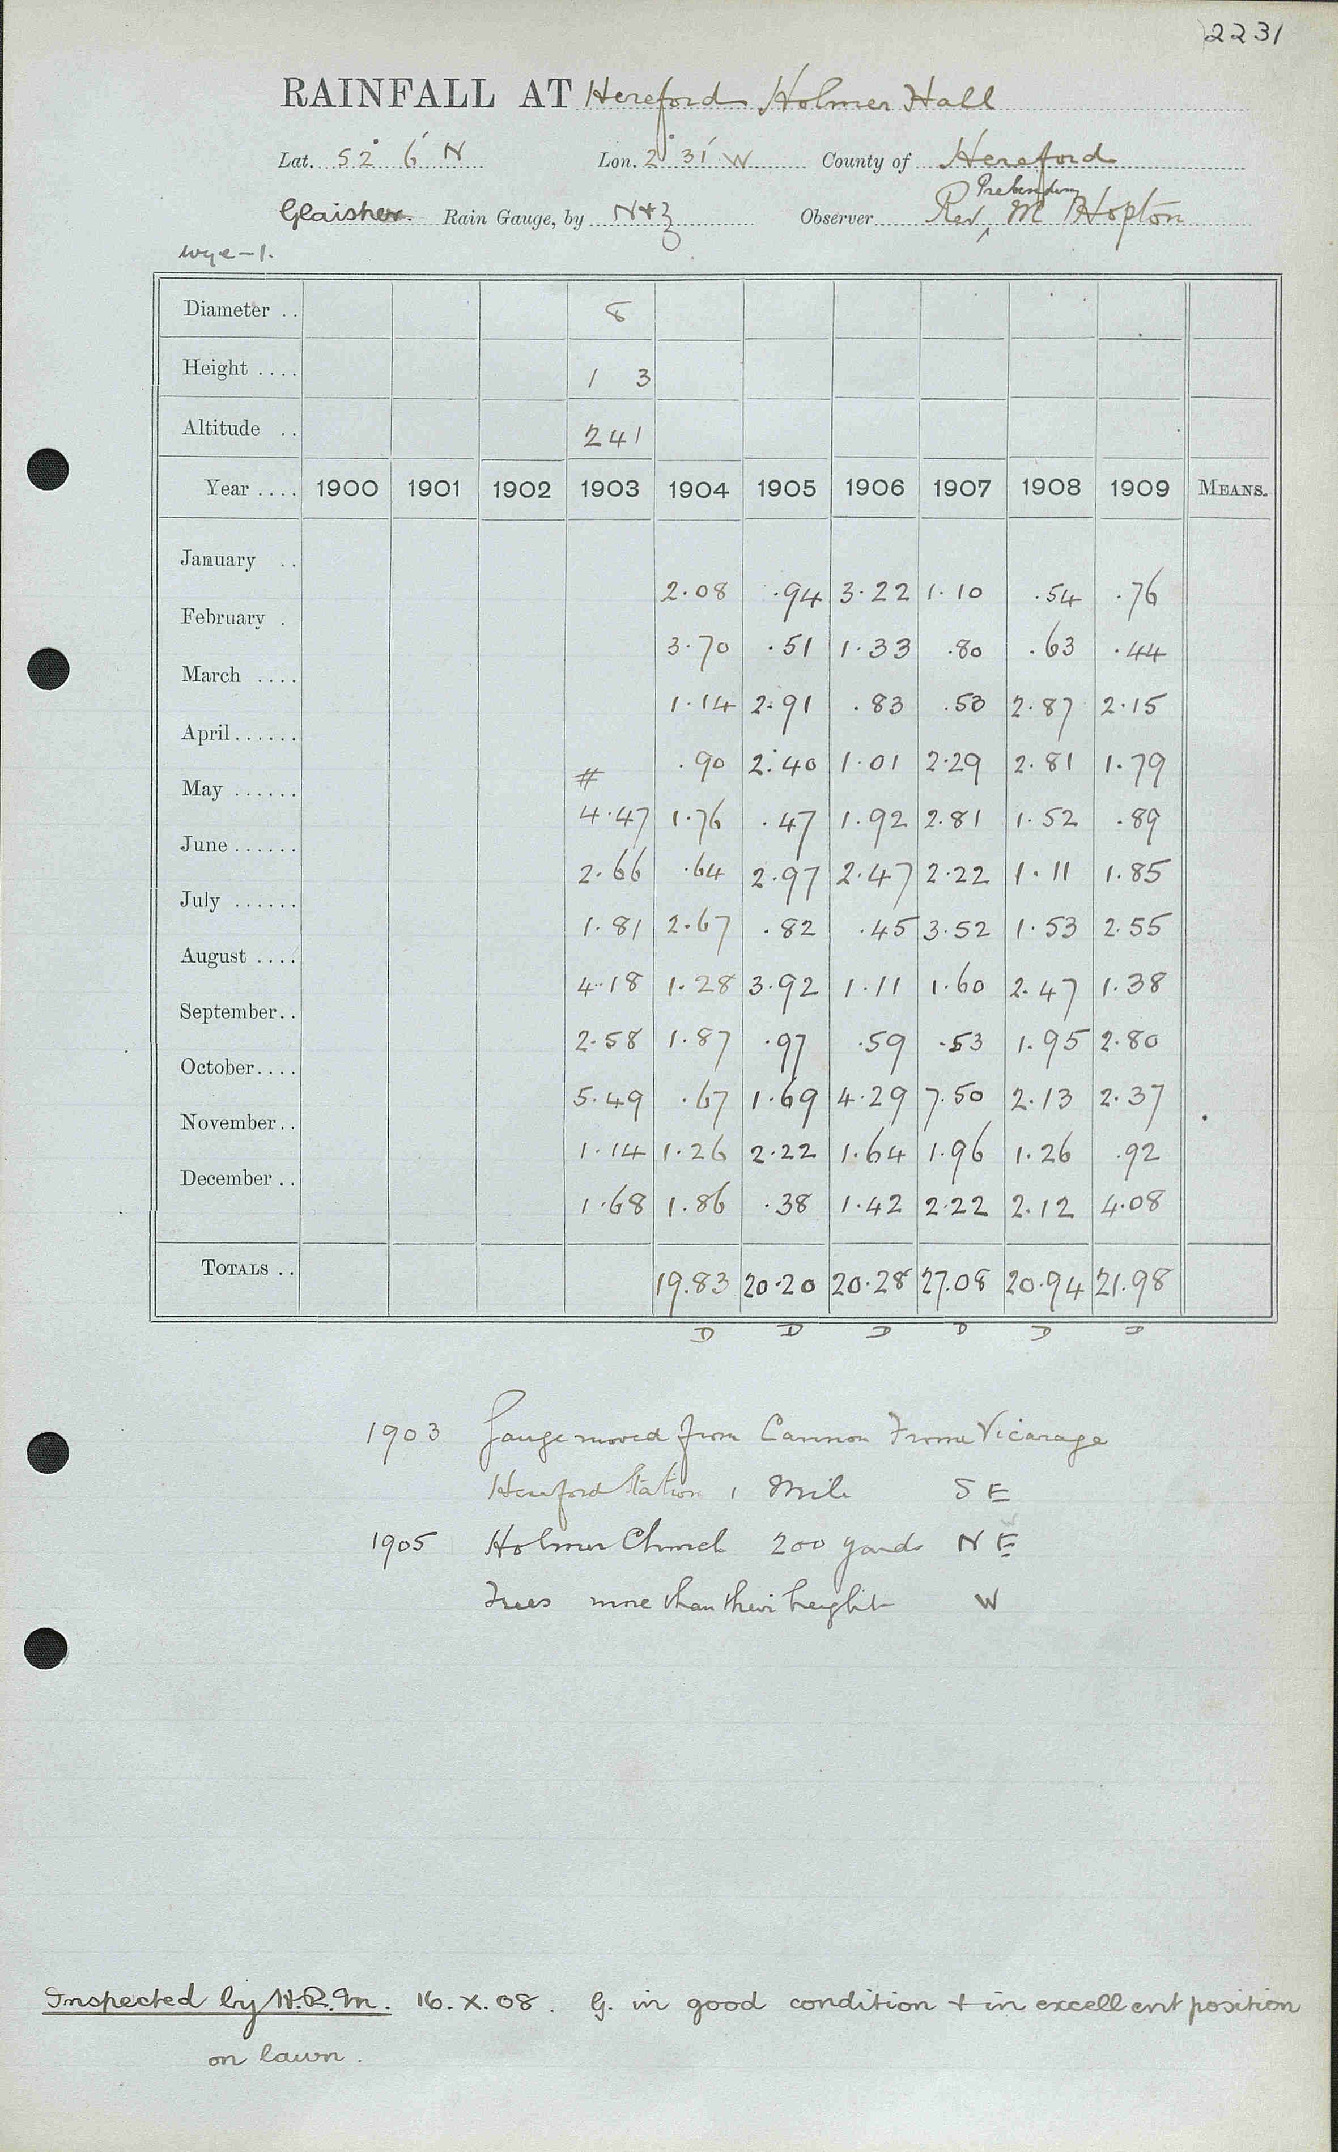 2231
RAINFALL AT Hereford Holmer Hall
Lat. 52° 6' N Lon. 2° 31' W County of Hereford
Prebendary
Glaisher Rain Gauge, by N+Z Observer Rev, M Hopton
Wye-1.
Diameter .. 8
Height .... 1 3
Altitude .. 241
Year .... 1900 1901 1902 1903 1904 1905 1906 1907 1908 1909 MEANS.
January .. 2.08 .94 3.22 1.10 .54 .76
February . 3.70 .51 1.33 .80 .63 .44
March .... 1.14 2.91 .83 .53 2.87 2.15
April...... # .90 2.40 1.01 2.29 2.81 1.79
May ...... 4.47 1.76 .47 1.92 2.81 1.52 .89
June ...... 2.66 .64 2.97 2.47 2.22 1.11 1.85
July ...... 1.81 2.67 .82 .45 3.52 1.53 2.55
August .... 4.18 1.28 3.92 1.11 1.60 2.47 1.38
September.. 2.58 1.87 .97 .59 .53 1.95 2.80
October.... 5.49 .67 1.69 4.29 7.50 2.13 2.37
November.. 1.14 1.26 2.22 1.64 1.96 1.26 .92
December .. 1.68 1.86 .38 1.42 2.22 2.12 4.08
TOTALS .. 19.83 20.20 20.28 27.08 20.94 21.98
D D D D D D
1903 Gauge moved from Cannon Frome Vicarage
Hereford Station 1 Mile SE
1905 Holmer Church 200 yards NE
Trees more than their height W
Inspected by H.R.M. 16.X.08. G. in good condition + in excellent position
on lawn.